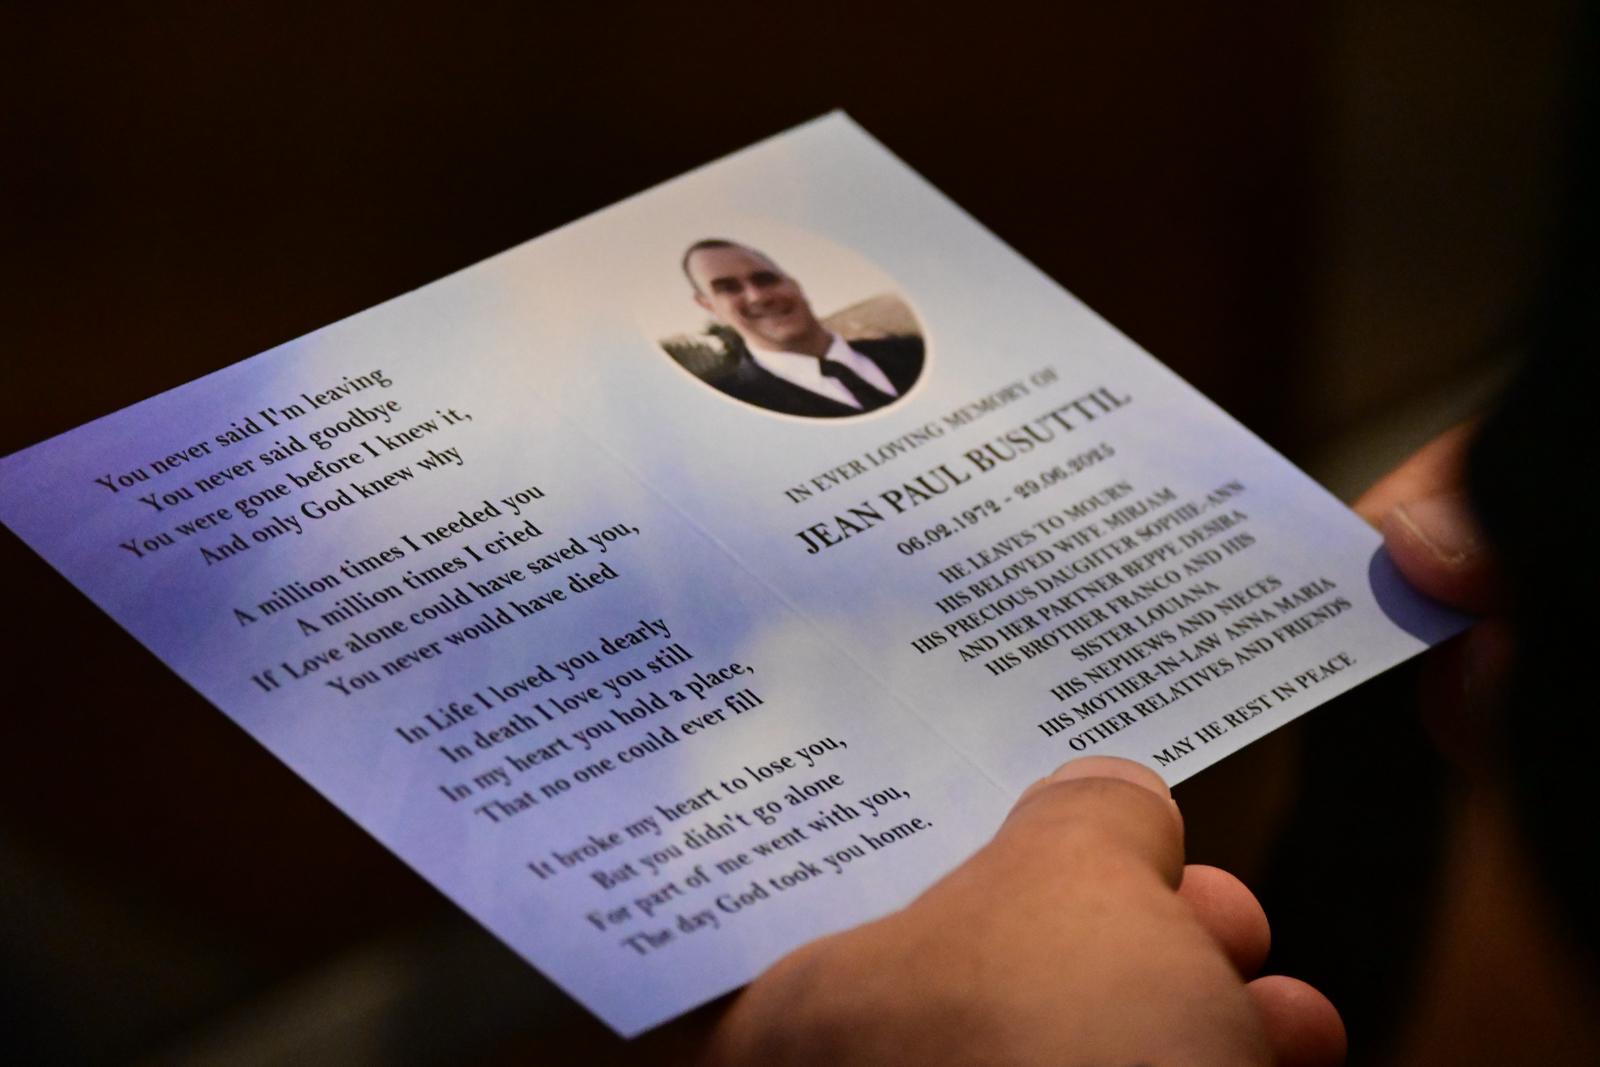 You never said I'm leaving
You never said goodbye
You were gone before I knew it,
And only God knew why
A million times I needed you
A million times I cried
If Love alone could have saved you,
You never would have died
In Life I loved you dearly
In death I love you still
In my heart you hold a place,
That no one could ever fill
It broke my heart to lose you,
But you didn't go alone
For part of me went with you,
The day God took you home.
IN EVER LOVING MEMORY OF
JEAN PAUL BUSUTTIL
06.02.1972 - 29.06.2025
HE LEAVES TO MOURN
HIS BELOVED WIFE MIRJAM
HIS PRECIOUS DAUGHTER SOPHIE-ANN
AND HER PARTNER BEPPE DESIRA
HIS BROTHER FRANCO AND HIS
SISTER LOUIANA
HIS NEPHEWS AND NIECES
HIS MOTHER-IN-LAW ANNA MARIA
OTHER RELATIVES AND FRIENDS
MAY HE REST IN PEACE